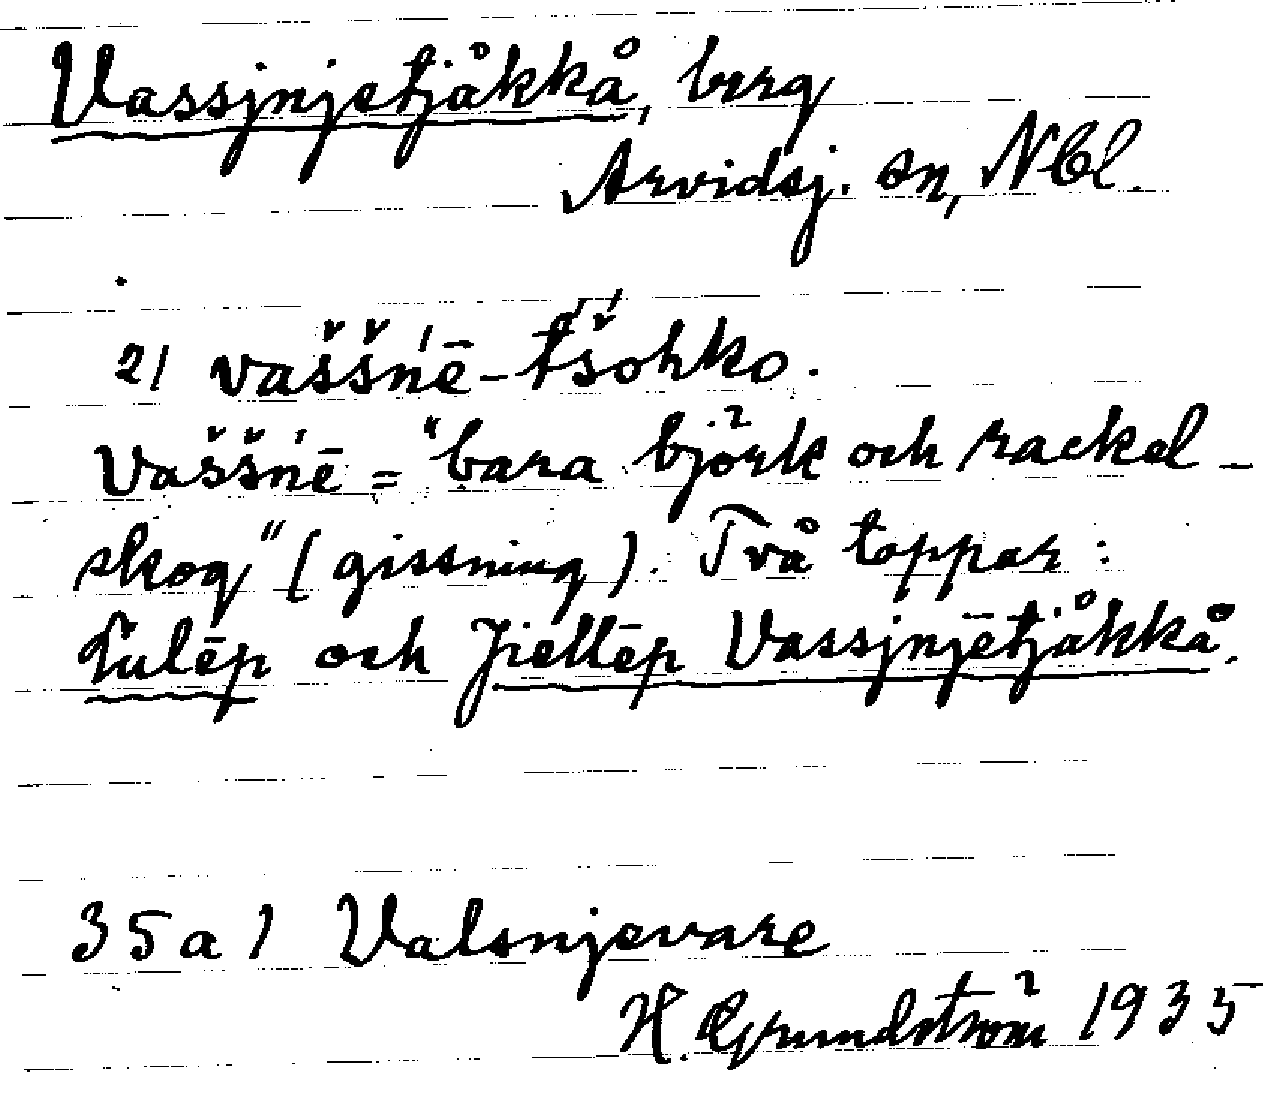 Vassjnjetjåkkå, berg
Arvidsj. sn, Nbl.
2/ vaššńē-t́šohko.
Vaššńē = "bara björk och rackel-
skog" (gissning). Två toppar:
Lulēp och Jiellēp Vassjnjētjåkkå.
35a) Valsnjevare
H. Grundström 1935